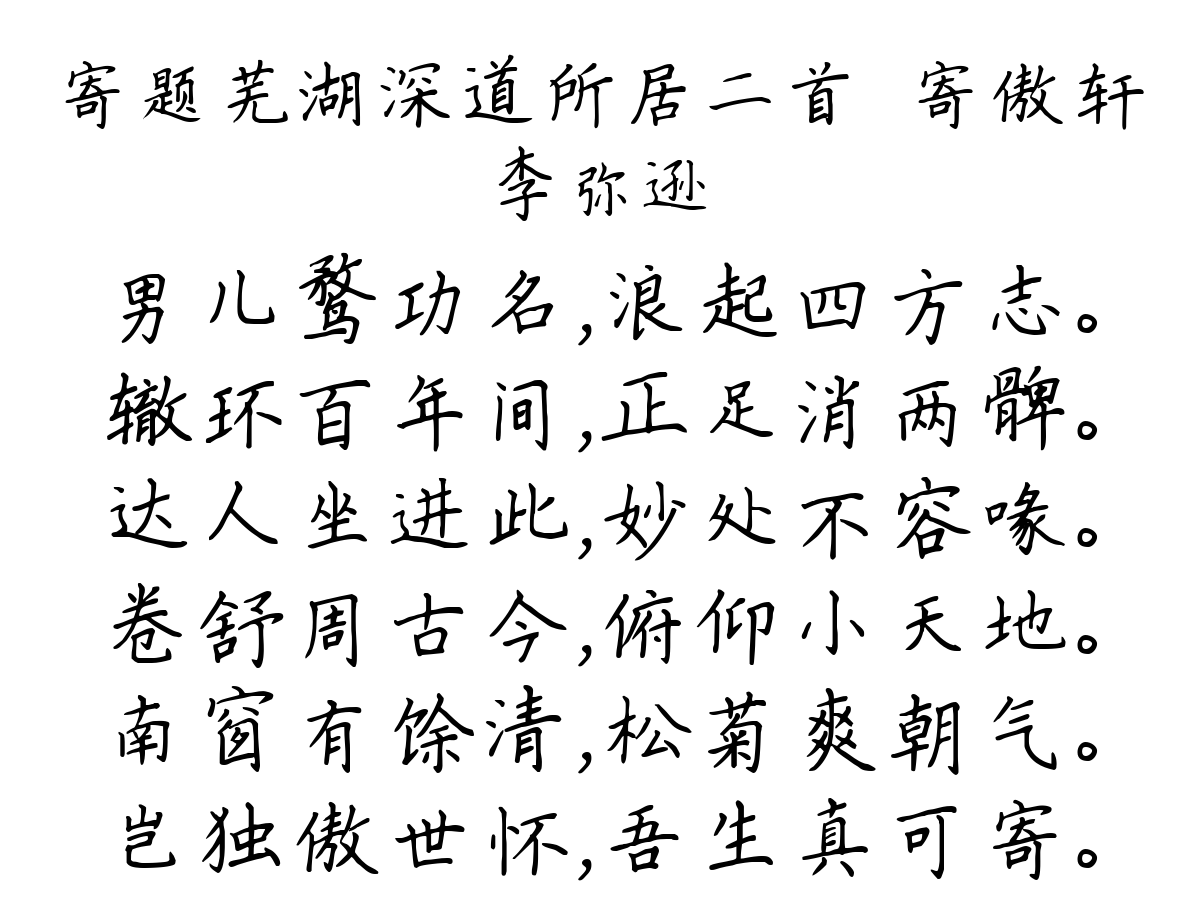 寄题芜湖深道所居二首 寄傲轩
李弥逊
男儿鹜功名,浪起四方志。
辙环百年间,正足消两髀。
达人坐进此,妙处不容喙。
卷舒周古今,俯仰小天地。
南窗有馀清,松菊爽朝气。
岂独傲世怀,吾生真可寄。